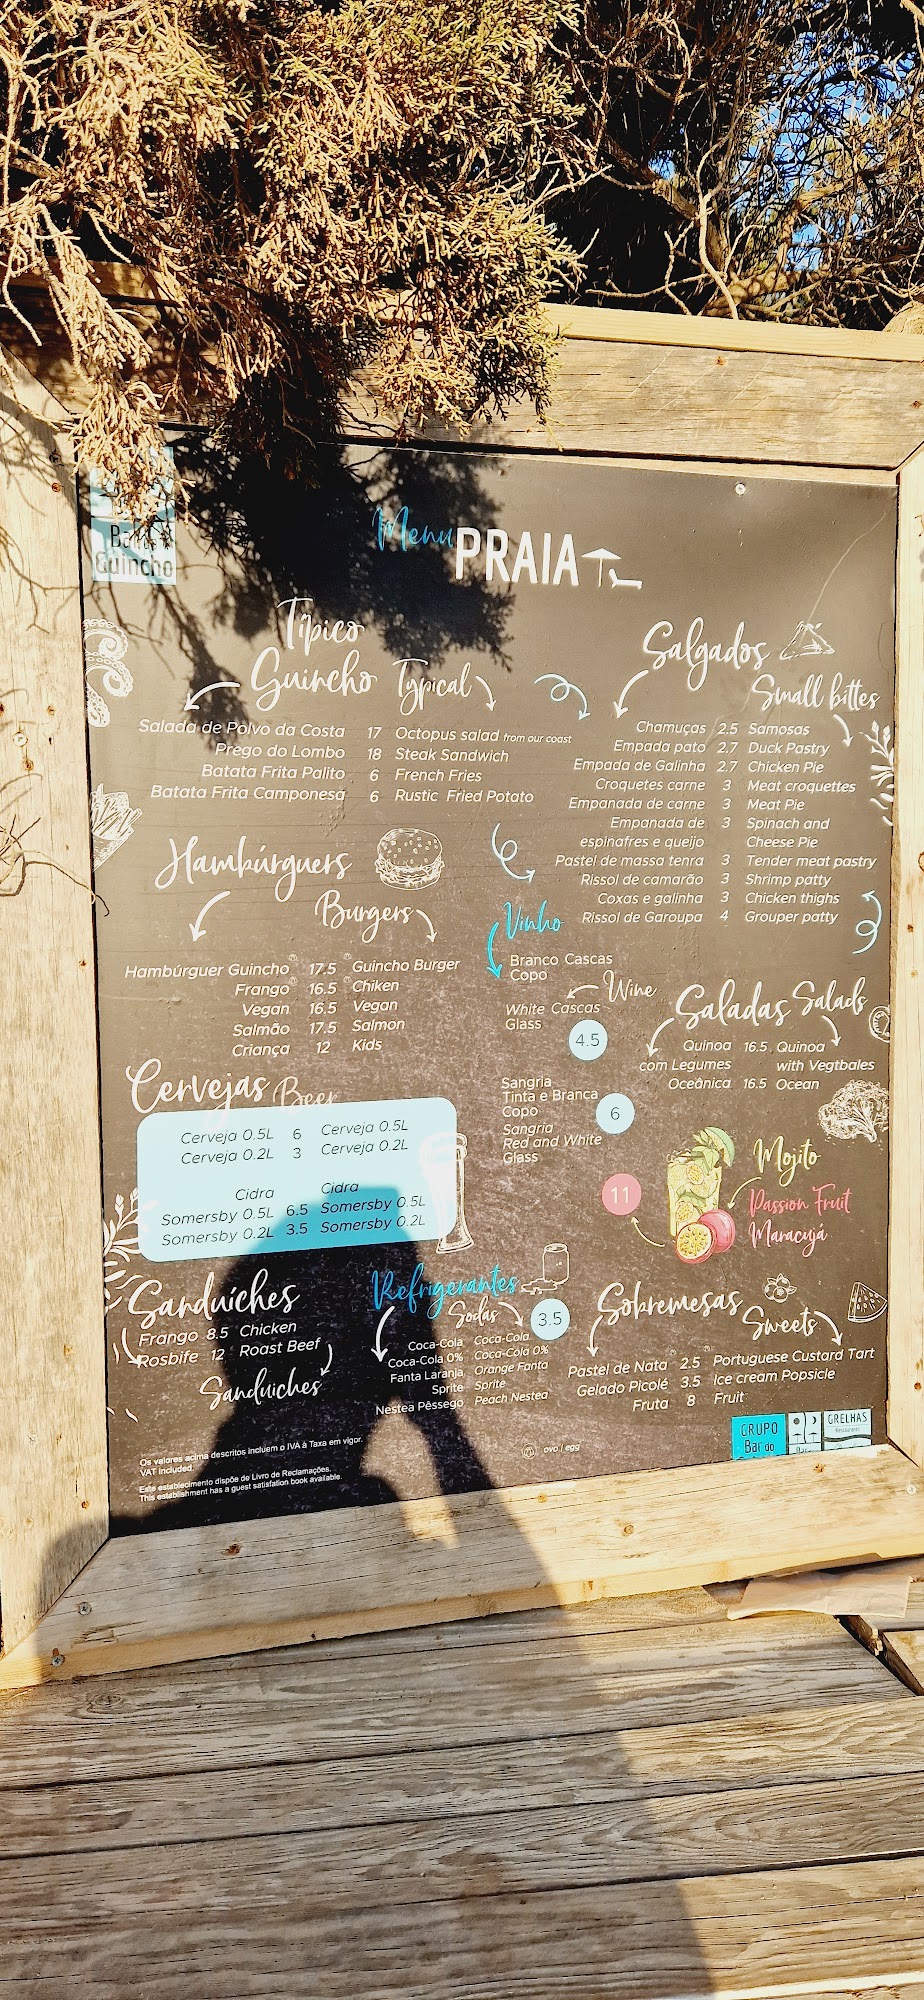 Bar do
Guincho
Menu PRAIA
Típico
Guincho Typical
Salada de Polvo da Costa 17 Octopus salad from our coast
Prego do Lombo 18 Steak Sandwich
Batata Frita Palito 6 French Fries
Batata Frita Camponesa 6 Rustic Fried Potato
Hambúrguers
Burgers
Hambúrguer Guincho 17.5 Guincho Burger
Frango 16.5 Chiken
Vegan 16.5 Vegan
Salmão 17.5 Salmon
Criança 12 Kids
Cervejas Beer
Cerveja 0.5L 6 Cerveja 0.5L
Cerveja 0.2L 3 Cerveja 0.2L
Cidra Cidra
Somersby 0.5L 6.5 Somersby 0.5L
Somersby 0.2L 3.5 Somersby 0.2L
Sanduíches
Frango 8.5 Chicken
Rosbife 12 Roast Beef
Sanduiches
Os valores acima descritos incluem o IVA à Taxa em vigor.
VAT Included.
Este estabelecimento dispõe de Livro de Reclamações.
This establishment has a guest satisfation book available.
Salgados
Small bittes
Chamuças 2.5 Samosas
Empada pato 2.7 Duck Pastry
Empada de Galinha 2.7 Chicken Pie
Croquetes carne 3 Meat croquettes
Empanada de carne 3 Meat Pie
Empanada de 3 Spinach and
espinafres e queijo Cheese Pie
Pastel de massa tenra 3 Tender meat pastry
Rissol de camarão 3 Shrimp patty
Coxas e galinha 3 Chicken thighs
Rissol de Garoupa 4 Grouper patty
Vinho
Branco Cascas
Copo
Wine
White Cascas
Glass
4.5
Sangria
Tinta e Branca
Copo
6
Sangria
Red and White
Glass
Saladas Salads
Quinoa 16.5 Quinoa
com Legumes with Vegtbales
Oceânica 16.5 Ocean
Mojito
11
Passion Fruit
Maracujá
Refrigerantes
Sodas
3.5
Coca-Cola Coca-Cola
Coca-Cola 0% Coca-Cola 0%
Fanta Laranja Orange Fanta
Sprite Sprite
Nestea Pêssego Peach Nestea
Sobremesas
Sweets
Pastel de Nata 2.5 Portuguese Custard Tart
Gelado Picolé 3.5 Ice cream Popsicle
Fruta 8 Fruit
ovo | egg
GRUPO
Bar do
GRELHAS